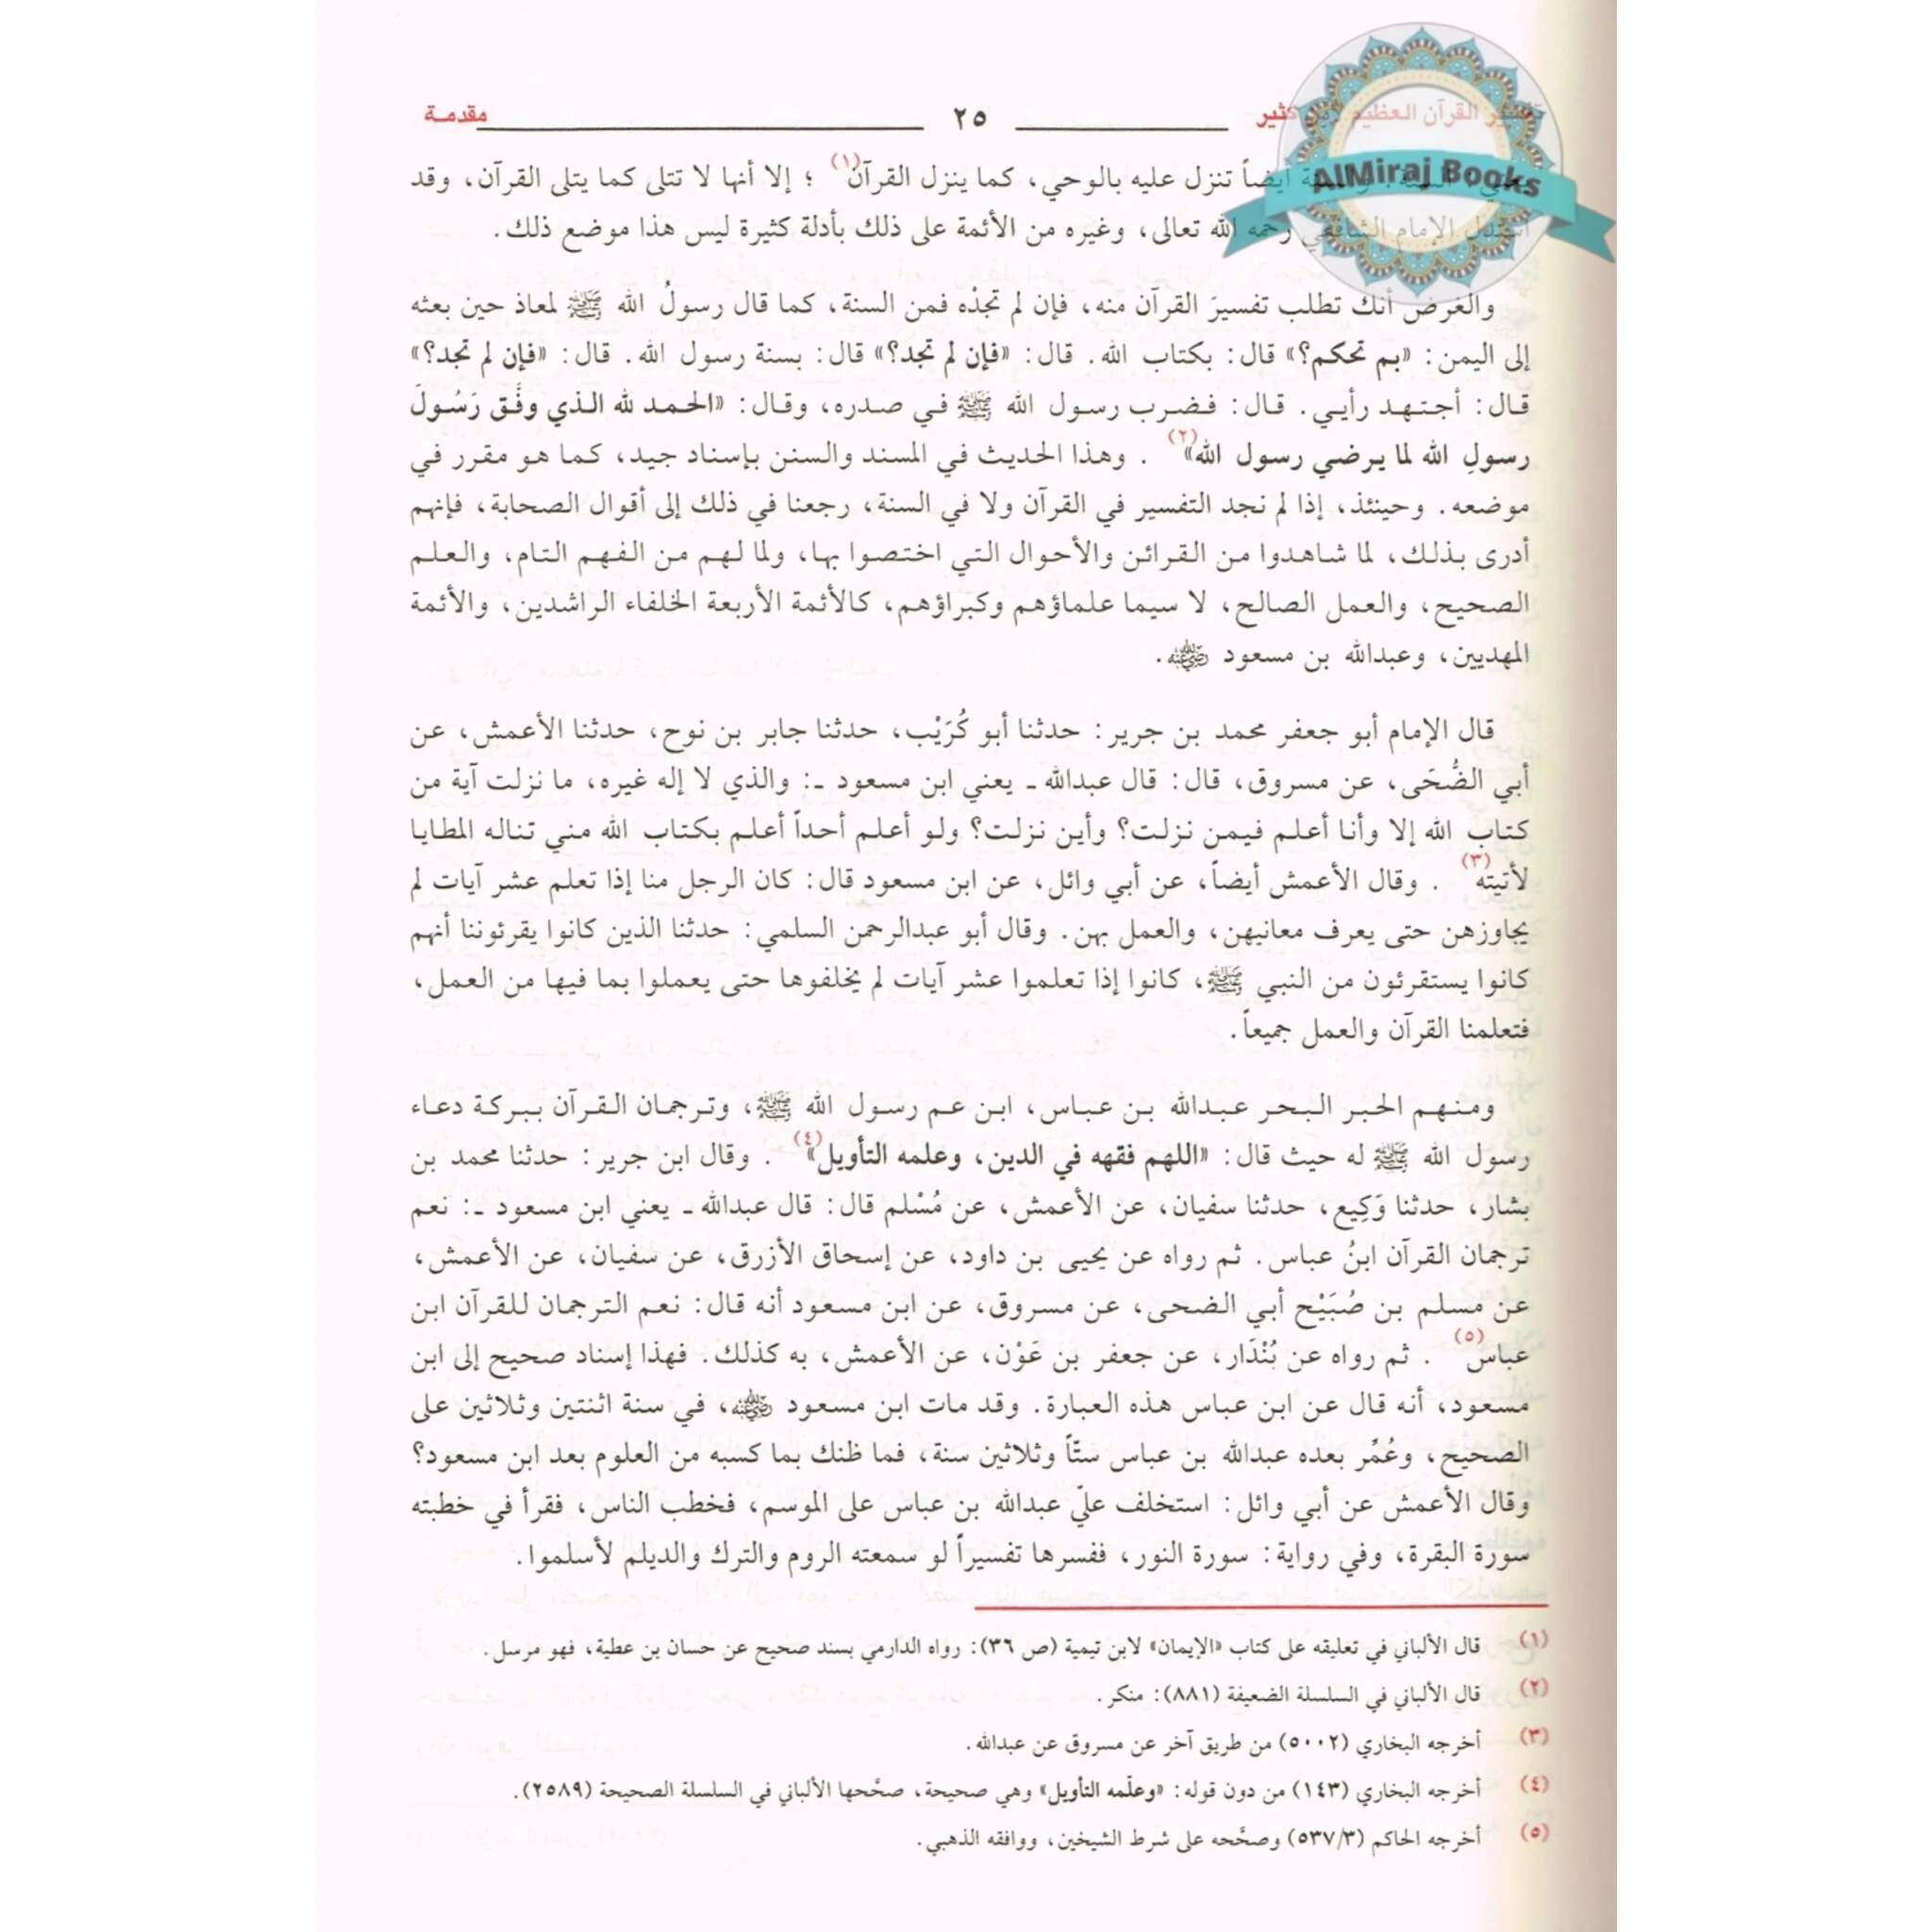 تفسير القرآن العظيم لابن كثير ٢٥ مقدمة
AlMiraj Books
أيضاً تنزل عليه بالوحي، كما ينزل القرآن(١)؛ إلا أنها لا تتلى كما يتلى القرآن، وقد
استدل الإمام الشافعي رحمه الله تعالى، وغيره من الأئمة على ذلك بأدلة كثيرة ليس هذا موضع ذلك.
والغرض أنك تطلب تفسيرَ القرآن منه، فإن لم تجدْه فمن السنة، كما قال رسولُ الله ﷺ لمعاذ حين بعثه
إلى اليمن: «بم تحكم؟» قال: بكتاب الله. قال: «فإن لم تجد؟» قال: بسنة رسول الله. قال: «فإن لم تجد؟»
قال: أجتهد رأيي. قال: فضرب رسول الله ﷺ في صدره، وقال: «الحمد لله الذي وفَّق رَسُولَ
رسولِ الله لما يرضي رسول الله»(٢). وهذا الحديث في المسند والسنن بإسناد جيد، كما هو مقرر في
موضعه. وحينئذ، إذا لم نجد التفسير في القرآن ولا في السنة، رجعنا في ذلك إلى أقوال الصحابة، فإنهم
أدرى بذلك، لما شاهدوا من القرائن والأحوال التي اختصوا بها، ولما لهم من الفهم التام، والعلم
الصحيح، والعمل الصالح، لا سيما علماؤهم وكبراؤهم، كالأئمة الأربعة الخلفاء الراشدين، والأئمة
المهديين، وعبدالله بن مسعود رضي الله عنه.
قال الإمام أبو جعفر محمد بن جرير: حدثنا أبو كُرَيْب، حدثنا جابر بن نوح، حدثنا الأعمش، عن
أبي الضُّحَى، عن مسروق، قال: قال عبدالله ـ يعني ابن مسعود ـ: والذي لا إله غيره، ما نزلت آية من
كتاب الله إلا وأنا أعلم فيمن نزلت؟ وأين نزلت؟ ولو أعلم أحداً أعلم بكتاب الله مني تناله المطايا
لأتيته(٣). وقال الأعمش أيضاً، عن أبي وائل، عن ابن مسعود قال: كان الرجل منا إذا تعلم عشر آيات لم
يجاوزهن حتى يعرف معانيهن، والعمل بهن. وقال أبو عبدالرحمن السلمي: حدثنا الذين كانوا يقرئوننا أنهم
كانوا يستقرئون من النبي ﷺ، كانوا إذا تعلموا عشر آيات لم يخلفوها حتى يعملوا بما فيها من العمل،
فتعلمنا القرآن والعمل جميعاً.
ومنهم الحبر البحر عبدالله بن عباس، ابن عم رسول الله ﷺ، وترجمان القرآن ببركة دعاء
رسول الله ﷺ له حيث قال: «اللهم فقهه في الدين، وعلمه التأويل»(٤). وقال ابن جرير: حدثنا محمد بن
بشار، حدثنا وَكِيع، حدثنا سفيان، عن الأعمش، عن مُسْلم قال: قال عبدالله ـ يعني ابن مسعود ـ: نعم
ترجمان القرآن ابنُ عباس. ثم رواه عن يحيى بن داود، عن إسحاق الأزرق، عن سفيان، عن الأعمش،
عن مسلم بن صُبَيْح أبي الضحى، عن مسروق، عن ابن مسعود أنه قال: نعم الترجمان للقرآن ابن
عباس(٥). ثم رواه عن بُنْدَار، عن جعفر بن عَوْن، عن الأعمش، به كذلك. فهذا إسناد صحيح إلى ابن
مسعود، أنه قال عن ابن عباس هذه العبارة. وقد مات ابن مسعود رضي الله عنه، في سنة اثنتين وثلاثين على
الصحيح، وعُمِّر بعده عبدالله بن عباس ستّاً وثلاثين سنة، فما ظنك بما كسبه من العلوم بعد ابن مسعود؟
وقال الأعمش عن أبي وائل: استخلف عليّ عبدالله بن عباس على الموسم، فخطب الناس، فقرأ في خطبته
سورة البقرة، وفي رواية: سورة النور، ففسرها تفسيراً لو سمعته الروم والترك والديلم لأسلموا.
(١) قال الألباني في تعليقه على كتاب «الإيمان» لابن تيمية (ص ٣٦): رواه الدارمي بسند صحيح عن حسان بن عطية، فهو مرسل.
(٢) قال الألباني في السلسلة الضعيفة (٨٨١): منكر.
(٣) أخرجه البخاري (٥٠٠٢) من طريق آخر عن مسروق عن عبدالله.
(٤) أخرجه البخاري (١٤٣) من دون قوله: «وعلّمه التأويل» وهي صحيحة، صحَّحها الألباني في السلسلة الصحيحة (٢٥٨٩).
(٥) أخرجه الحاكم (٥٣٧/٣) وصحَّحه على شرط الشيخين، ووافقه الذهبي.